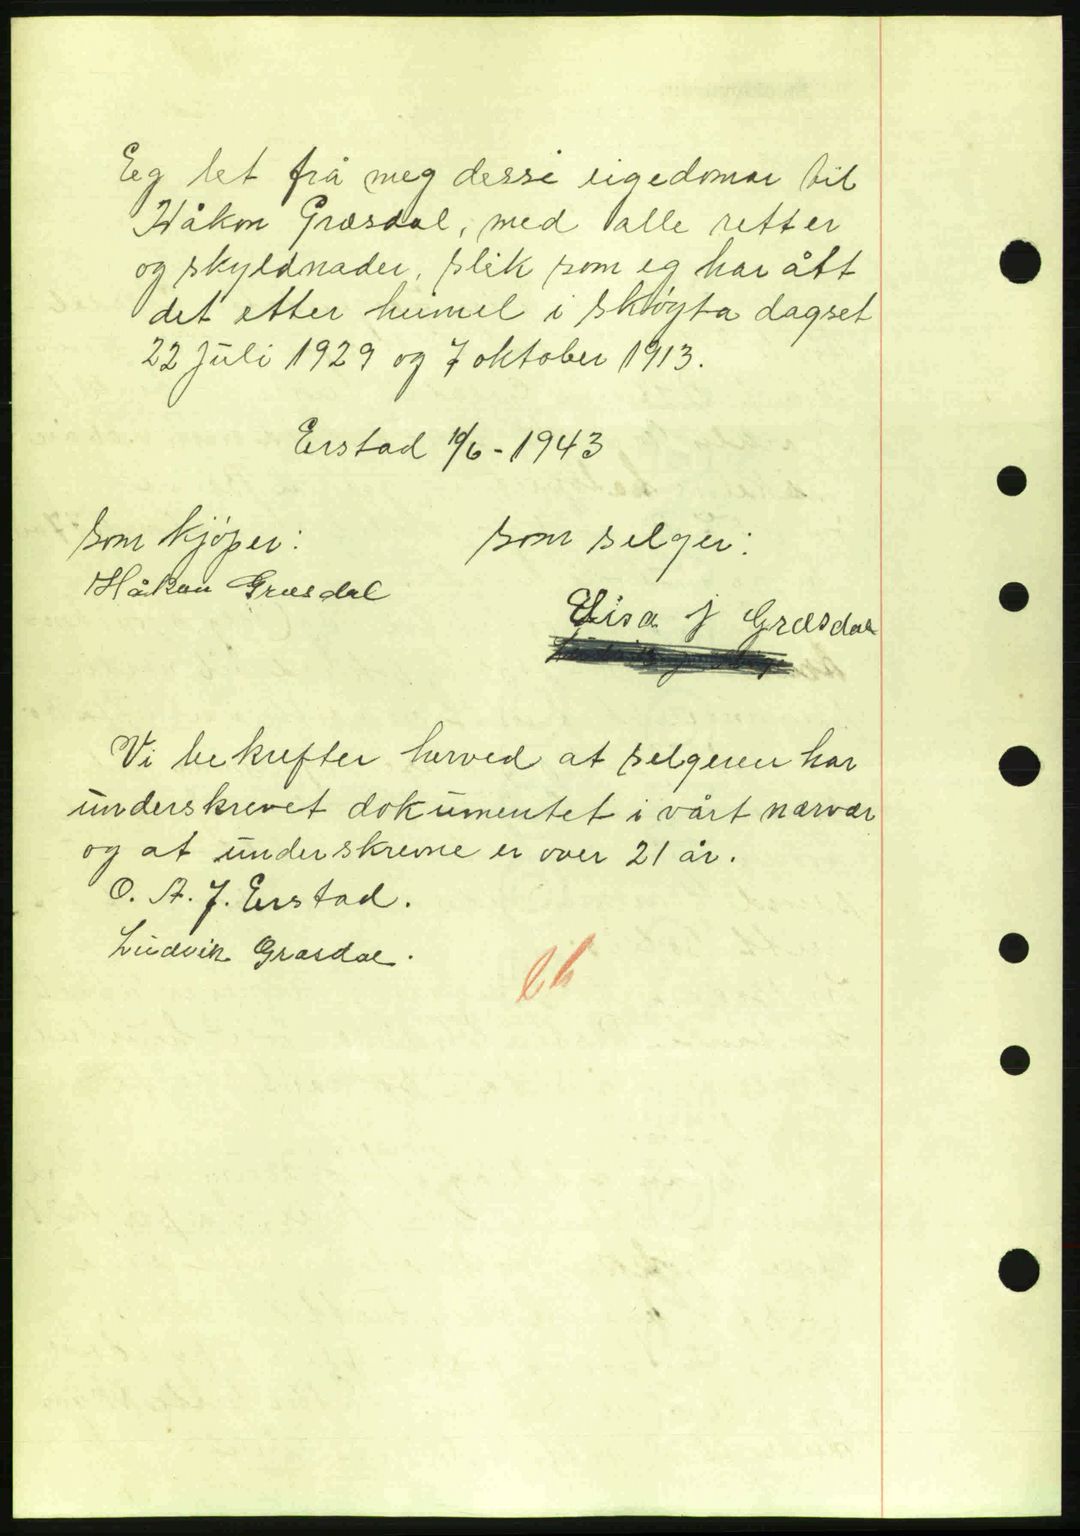 Eeg let frå meg desse eigedomar til
Håkon Græsdal, med alle retter
og skyldnader, slik som eg har ått
det etter heimel i skøyta dagset
22 juli 1929 og 7 oktober 1913.
Eerstad 10/6 - 1943
Som kjøper: som selger:
Håkon Græsdal
Elisa J Græsdal
Vi bekrefter herved at selgeren har
underskrevet dokumentet i vårt nærvær
og at underskrevne er over 21 år.
O. A. J. Eerstad.
Ludvik Græsdal.